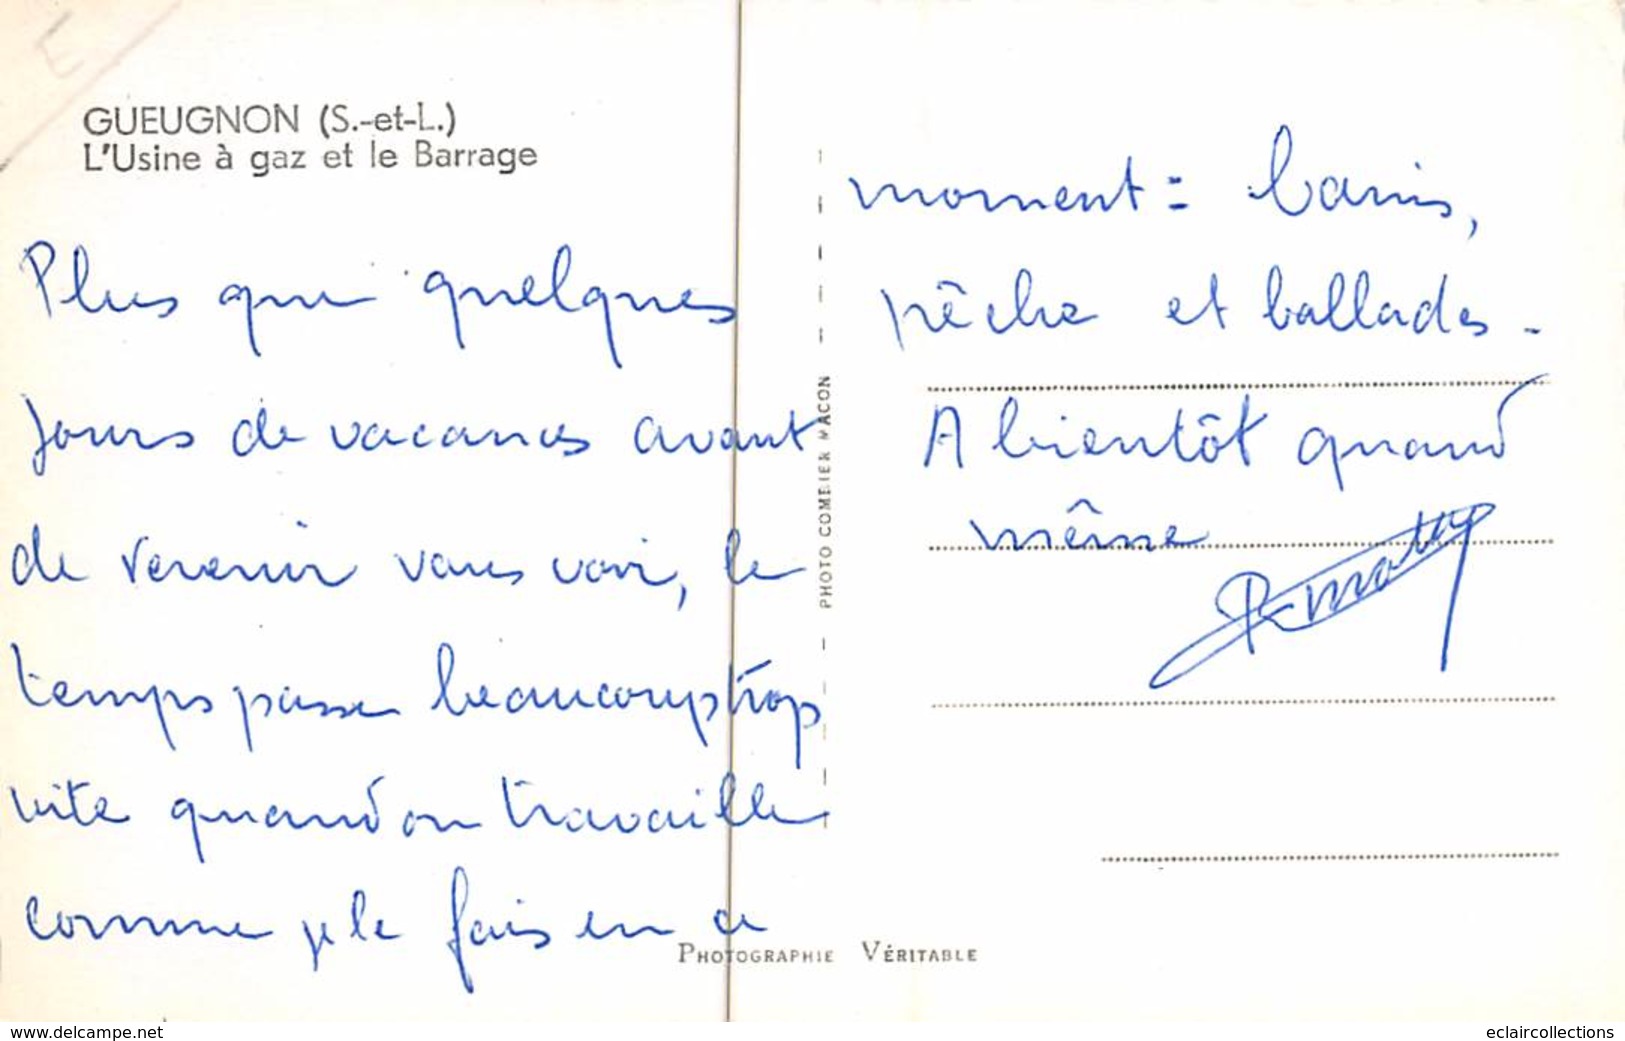 E
GUEUGNON (S.-et-L.)
L'Usine à gaz et le Barrage
Plus que quelques
jours de vacances avant
de revenir vous voir, le
temps passe beaucoup trop
vite quand on travaille
comme je le fais en ce
moment = bains,
pêche et ballades.
A bientôt quand
même
PHOTO COMBIER MACON
PHOTOGRAPHIE VÉRITABLE
www.delcampe.net
eclaircollections